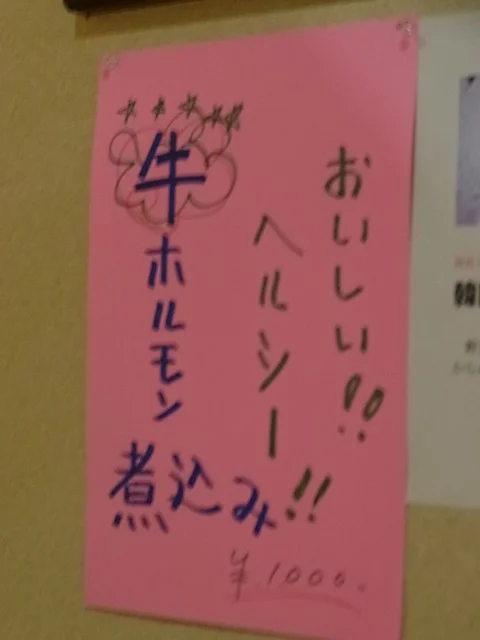 おいしい!!
ヘルシー!!
牛ホルモン
煮込み
¥1000.
韓